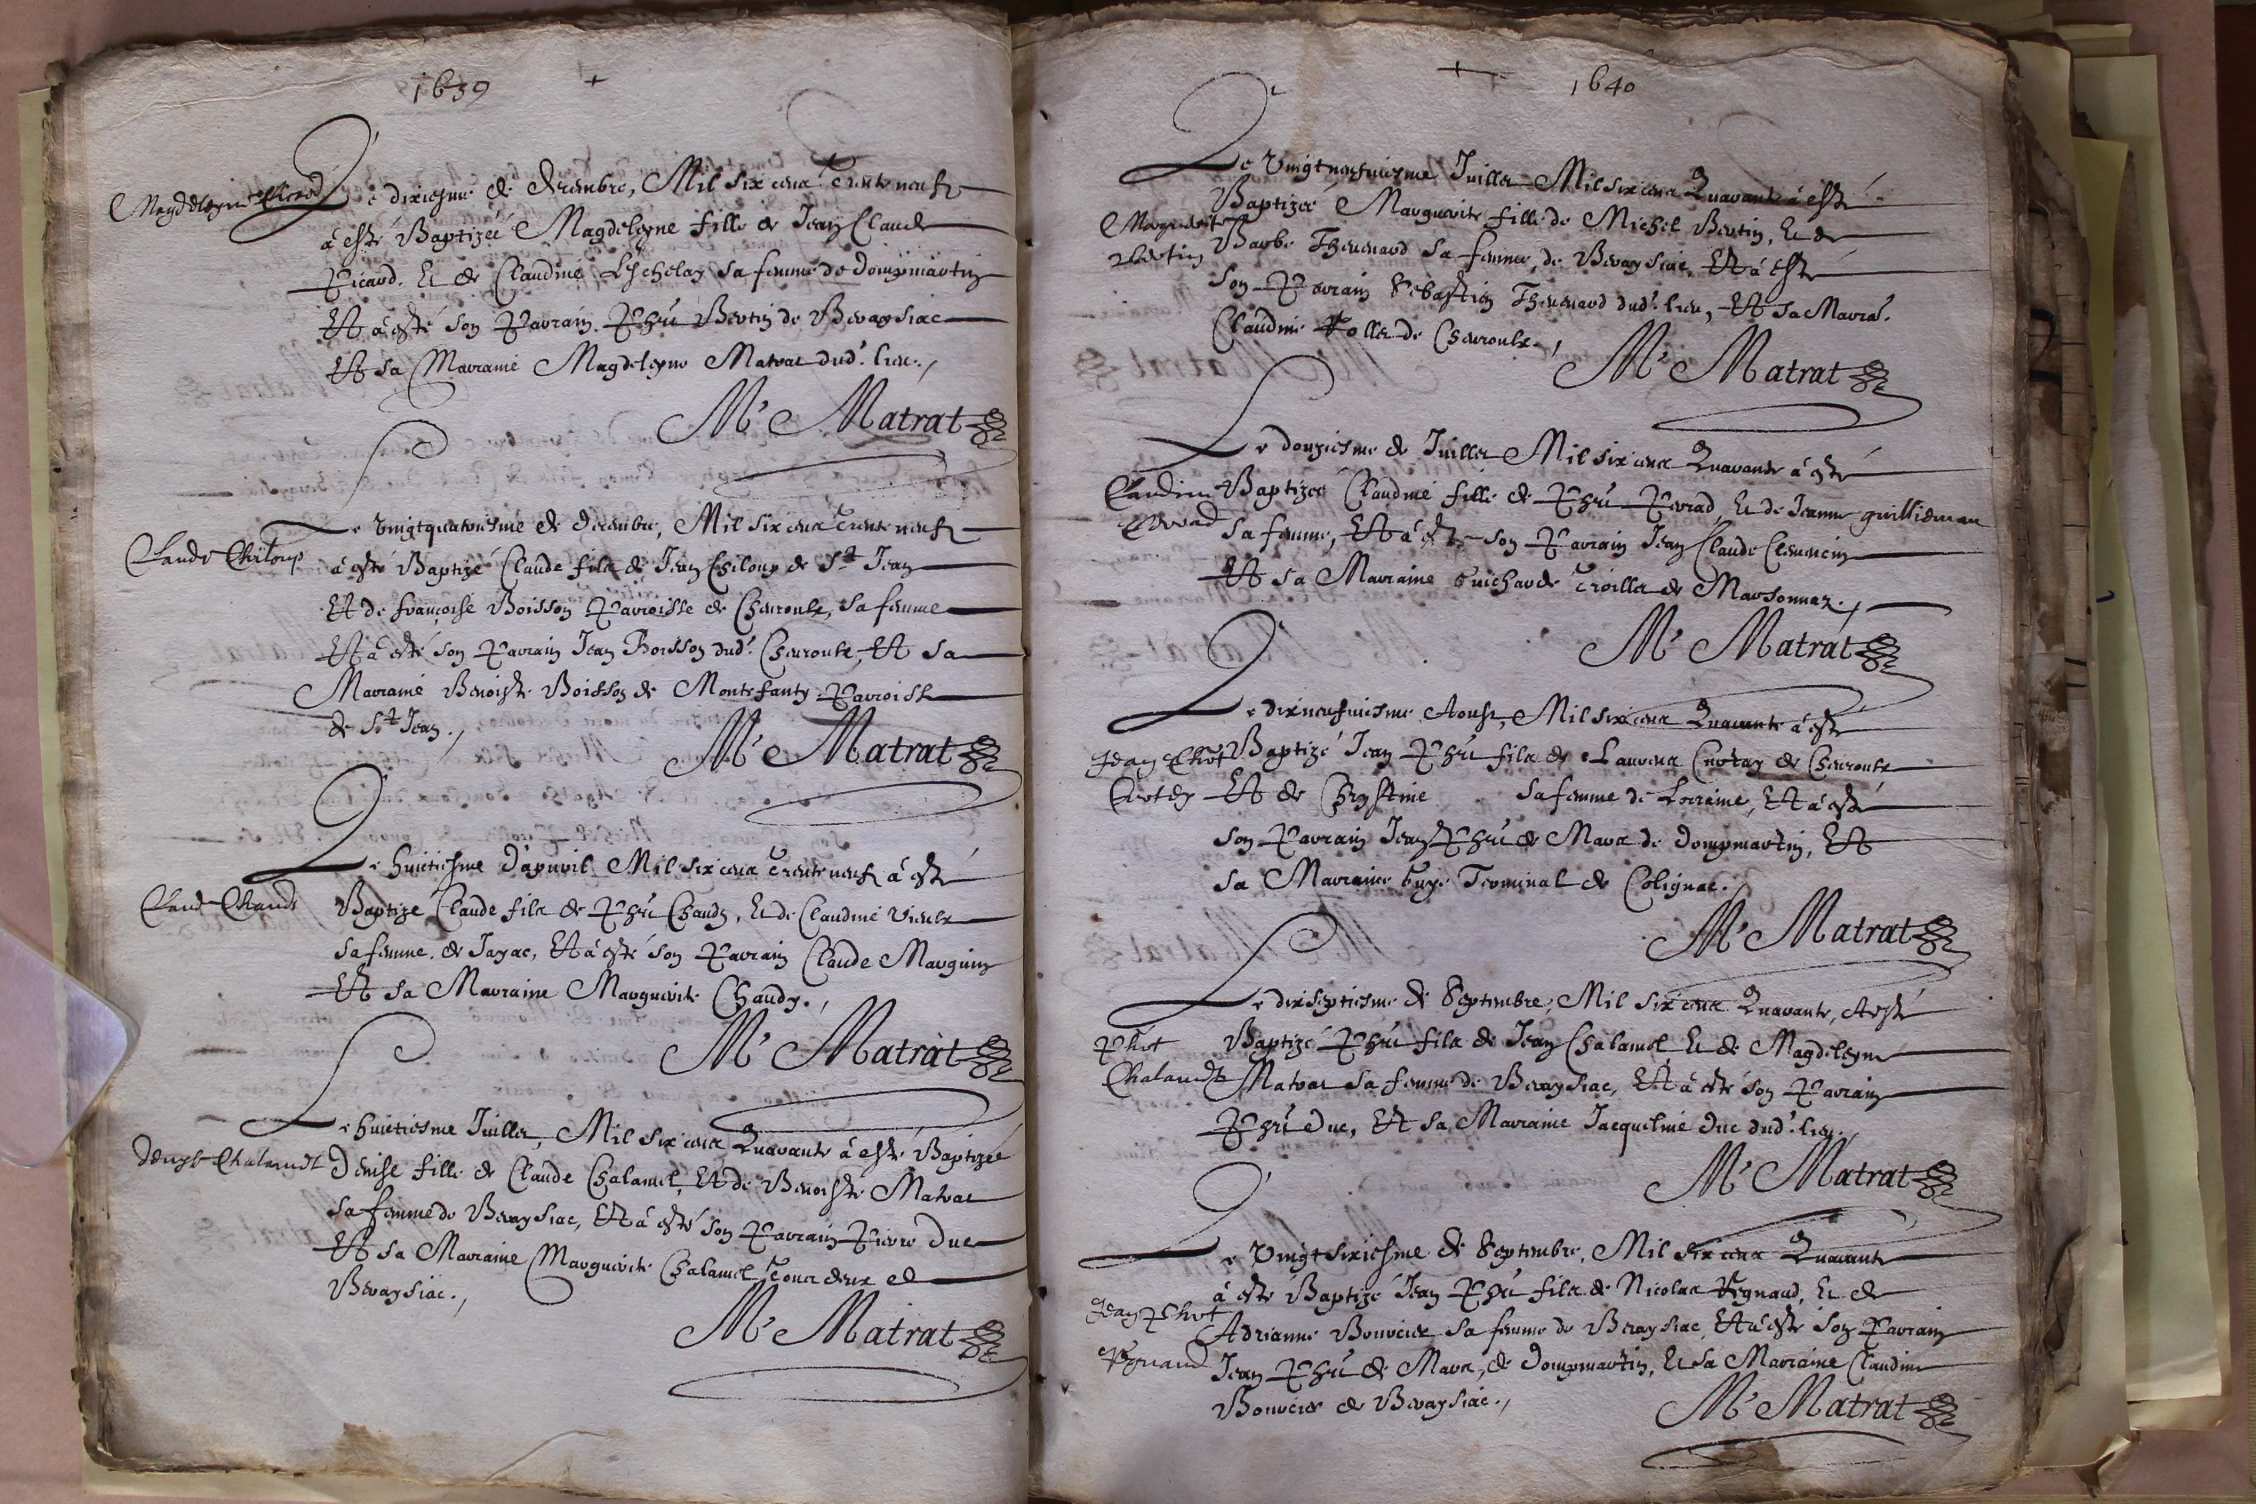 1639
Le dixiesme de decembre, Mil six cens trente neufz
à esté Baptizéé Magdeleyne fille de Jean Claude
Picard. Et de Claudine sa femme de dompmartin
Et a esté son Parrain. Phẽ Bertin de Beraysiac
Et sa Marraine Magdeleyne Matrat dud. lieu.
M. Matrat
Le vingtquatriesme de decembre, Mil six cens trente neufz
Claude Chiloup
à esté Baptizé Claude filz de Jean Chiloup de St Jean
Et de françoise Boisson Parroisse de Chevroulx, sa femme
Et a esté son Parrain Jean Boisson dud. Chevroulx, Et sa
Marraine Benoiste Boisson de Montefanty Parroisse
de St Jean.
M. Matrat
Le huictiesme d'apuril Mil six cens trente neufz a esté
Claude Chaudy
Baptizé Claude filz de Phẽ Chaudy, Et de Claudine
sa femme, de Jayac, Et a esté son Parrain Claude Marguin
Et sa Marraine Marguerite Chaudy.
M. Matrat
Le huictiesme Juillet, Mil six cens Quarante à esté Baptizéé
Denyse Chalamel
Denise fille de Claude Chalamel, Et de Benoiste Matrat
sa femme de Beraysiac, Et a esté son Parrain Pierre Duc
Et sa Marraine Marguerite Chalamel tous deux de
Beraysiac.
M. Matrat
1640
Le vingtneufuiesme Juillet Mil six cens Quarante à esté
Baptizéé Marguerite fille de Michel Bertin, Et de
Marguerite
Bertin
Barbe Thevenard sa femme, de Beraysiac, Et à esté
son Parrain Sebastien Thevenard dud. lieu, Et sa Marra.
Claudine de Chevroulx.
M. Matrat
Le douziesme de Juillet Mil six cens Quarante à esté
Claudine
Perrad
Baptizéé Claudine fille de Phẽ Perrad, Et de Jeanne guilliemau
sa femme, Et à esté son Parrain Jean Claude Clemencin
Et sa Marraine Guicharde Troillet de Marsonnaz.
M. Matrat
Le dixneufuiesme Aoust, Mil six cens Quarante a esté
Jean Phot
Baptizé Jean Phẽ filz de Laurens Curtay de Chevroulx
Et de Chrystine sa femme de Lorraine, Et a esté
son Parrain Jean Phẽ de Mara de dompmartin, Et
sa Marraine Guye Terminal de Colignac.
M. Matrat
Le dixseptiesme de Septembre, Mil six cens Quarante, A esté
Phot
Chalamel
Baptizé Phẽ filz de Jean Chalamel Et de Magdeleyne
Matrat sa femme de Beraysiac, Et à esté son Parrain
Phẽ Duc, Et sa Marraine Jacqueline Duc dud. lieu.
M. Matrat
Le vingt sixiesme de Septembre, Mil six cens Quarante
à esté Baptizé Jean Phẽ filz de Nicolas Regnaud, Et de
Jean Phot
Adrianne Bouvier sa femme de Beraysiac, Et a esté son Parrain
Jean Phẽ de Mara, de dompmartin, Et sa Marraine Claudine
Bouvier de Beraysiac.
M. Matrat